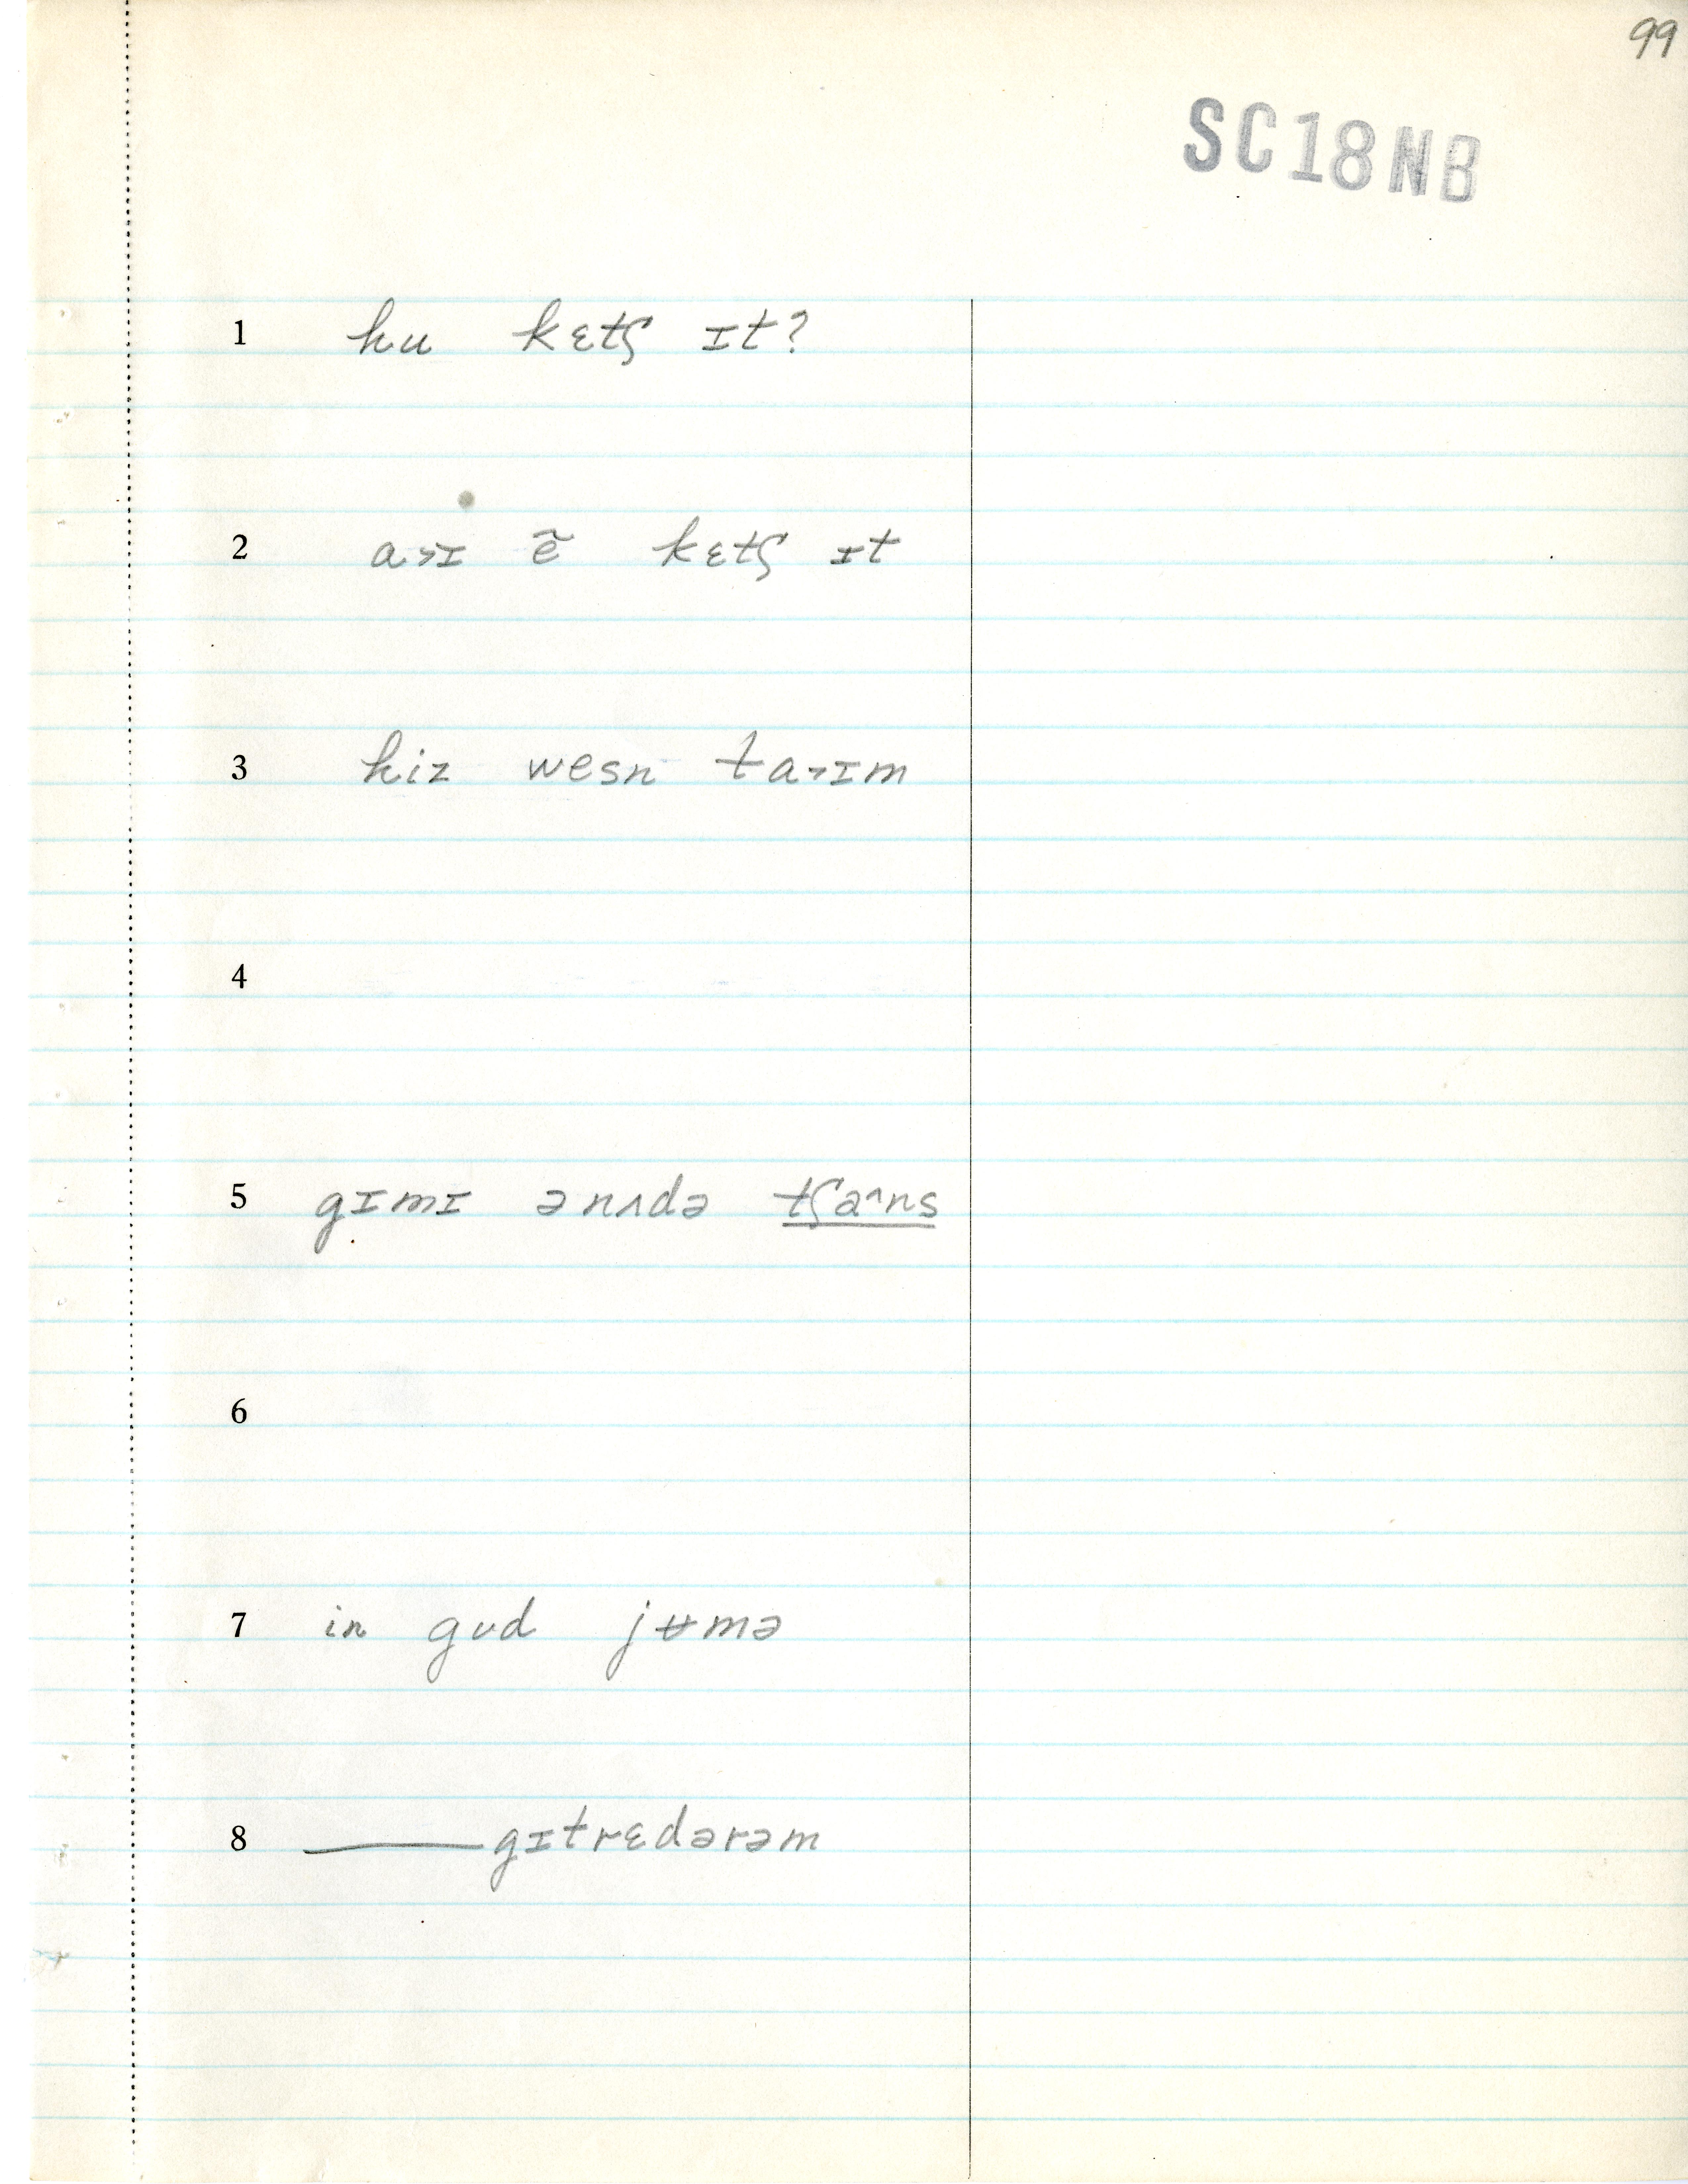 99
SC18NB
1 hu kɛtʃ ɪt?
2 a˃ɪ ẽ kɛtʃ ɪt
3 hiz wesn ta˃ɪm
4
5 gɪmɪ ənʌdə tʃa^ns
6
7 in gʊd jʉmə
8 ———gɪtrɛdərəm